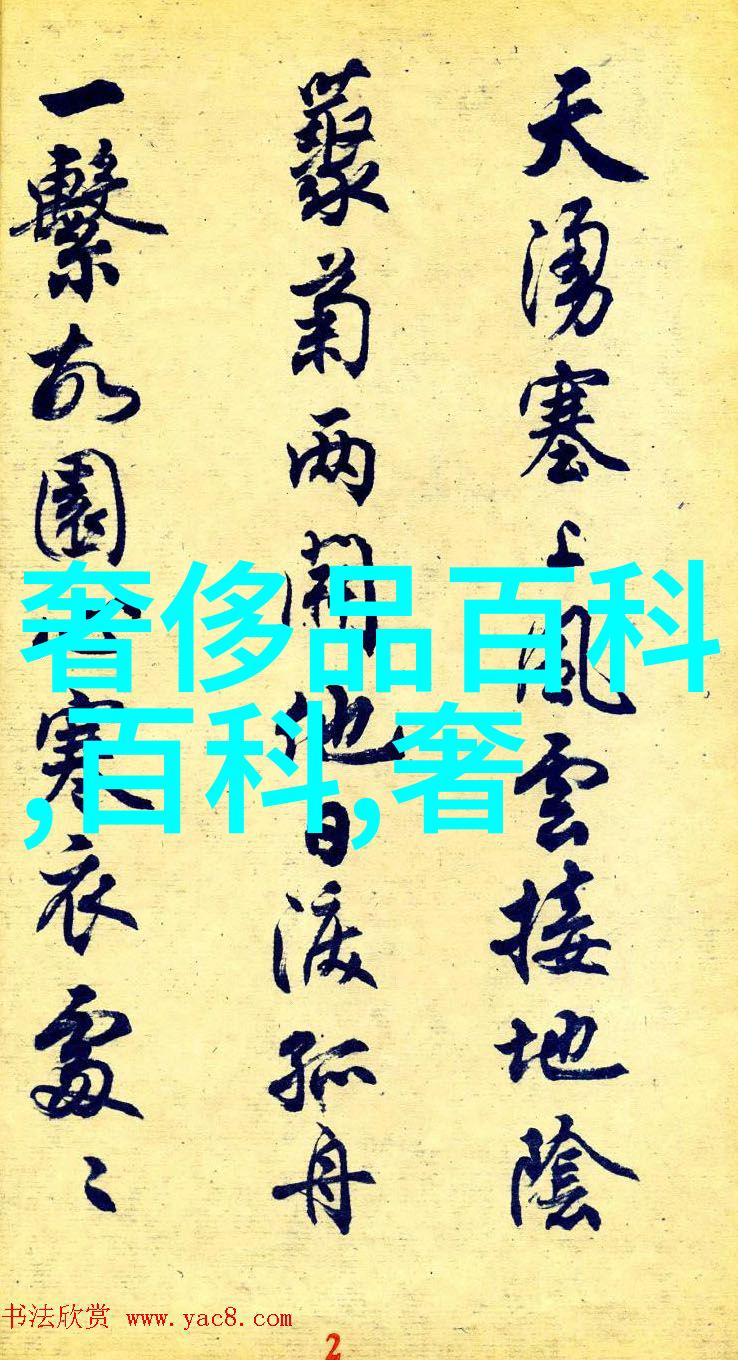 天湧塞上風雲接地陰
藂菊两開他日淚孤舟
一繫故園心寒衣處〻
奢侈品百科
,百科,奢
书法欣赏 www.yac8.com
2